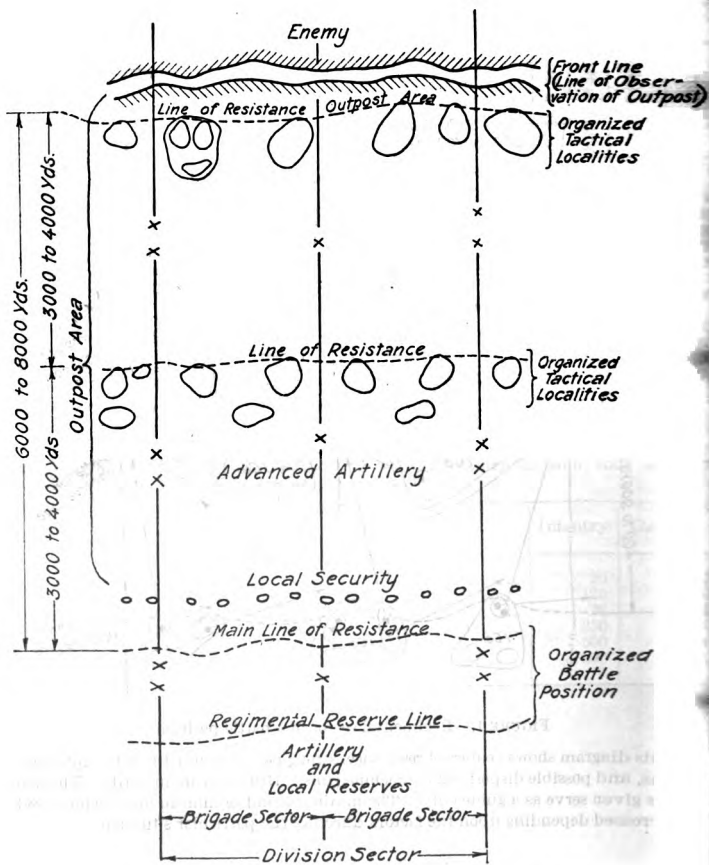 Enemy
Front Line
(Line of Obser-
vation of Outpost)
Line of Resistance Outpost Area
Organized
Tactical
Localities
6000 to 8000 Yds.
3000 to 4000 Yds.
Outpost Area
x x x
x x x
Line of Resistance
Organized
Tactical
Localities
3000 to 4000 Yds
x x x
Advanced Artillery
x x
Local Security
Main Line of Resistance
Organized
Battle
Position
x x x
x x
Regimental Reserve Line
Artillery
and
Local Reserves
Brigade Sector Brigade Sector
Division Sector